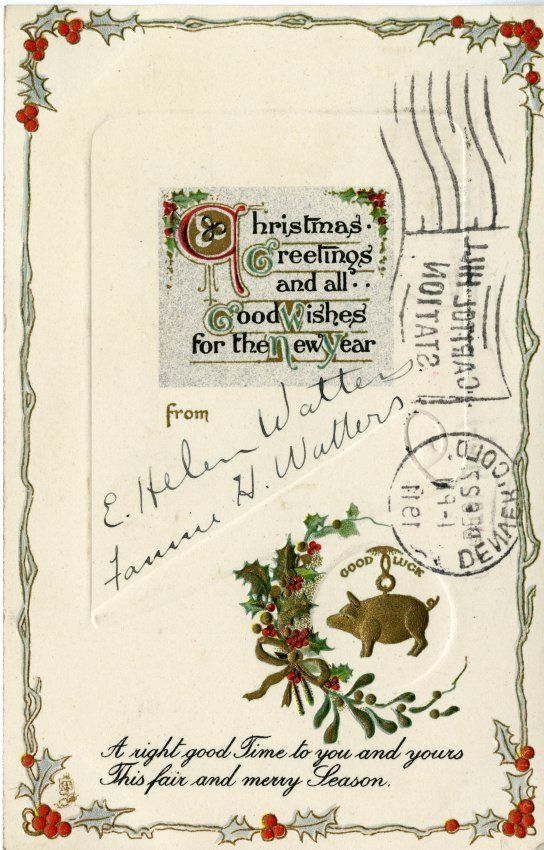 Christmas
Greetings
and all
Good Wishes
for the New Year
from
E. Helen Watters
Fannie H. Watters
GOOD LUCK
A right good Time to you and yours
This fair and merry Season.
CAPITOL HILL
STATION
DENVER, COLO.
DEC 22
1911